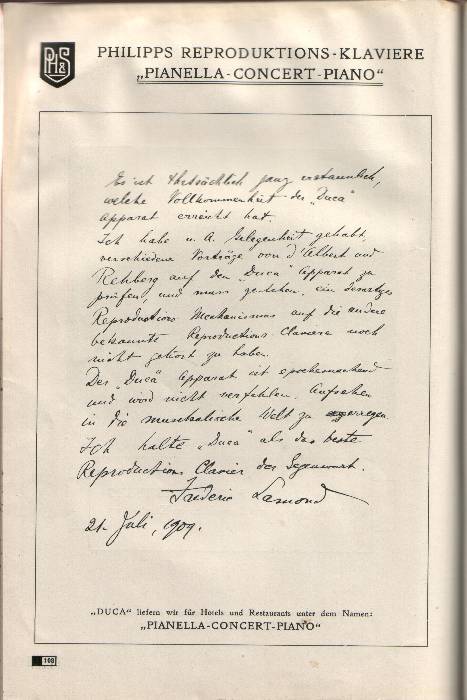 PH&S
PHILIPPS REPRODUKTIONS-KLAVIERE
„PIANELLA-CONCERT-PIANO“
Es ist thatsächlich ganz erstaunlich,
welche Vollkommenheit der „Duca“
Apparat erreicht hat.
Ich habe u. A. Gelegenheit gehabt
verschiedene Vorträge von d'Albert und
Rehberg auf den „Duca“ Apparat zu
prüfen, und muss gestehen, ein derartiges
Reproductions Mechanismus auf die andere
bekannte Reproductions Claviere noch
nicht gehört zu haben.
Der „Duca“ Apparat ist epochemachend
und wird nicht verfehlen, Aufsehen
in die musikalische Welt zu erregen.
Ich halte „Duca“ als das beste
Reproductions Clavier der Gegenwart.
Frederic Lamond
21. Juli, 1909.
„DUCA“ liefern wir für Hotels und Restaurants unter dem Namen:
„PIANELLA-CONCERT-PIANO“
108